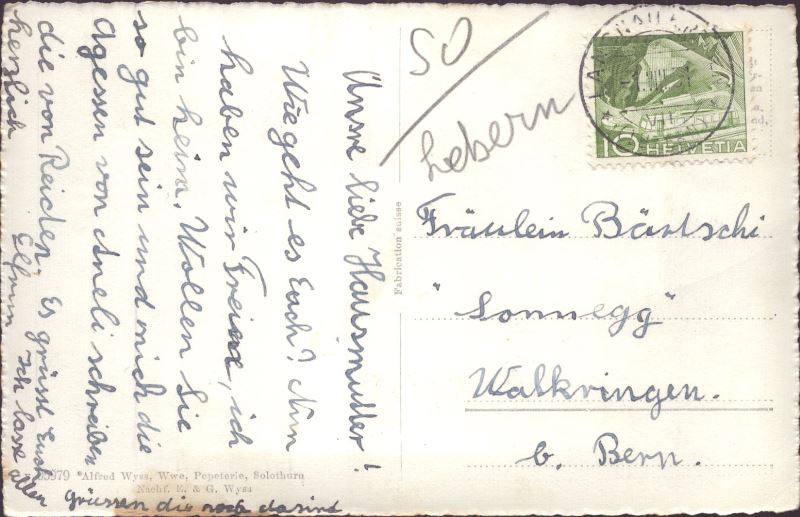 Unsre liebe Hausmutter!
Wie geht es Euch? Nun
haben wir Freien, ich
bin heim. Wollen Sie
so gut sein und mich die
Agessen von Aneli schreiben
die von Reiden. Es grüsst Euch
herzlich Elfrun Ich lasse aller
grüssen die noch da sind
35979 Alfred Wyss, Wwe, Pepeterie, Solothurn
Nachf. E. & G. Wyss
Fabrication suisse
50
Lebern
10 HELVETIA
Fräulein Bärtschi
"Sonnegg"
Walkringen.
b. Bern.